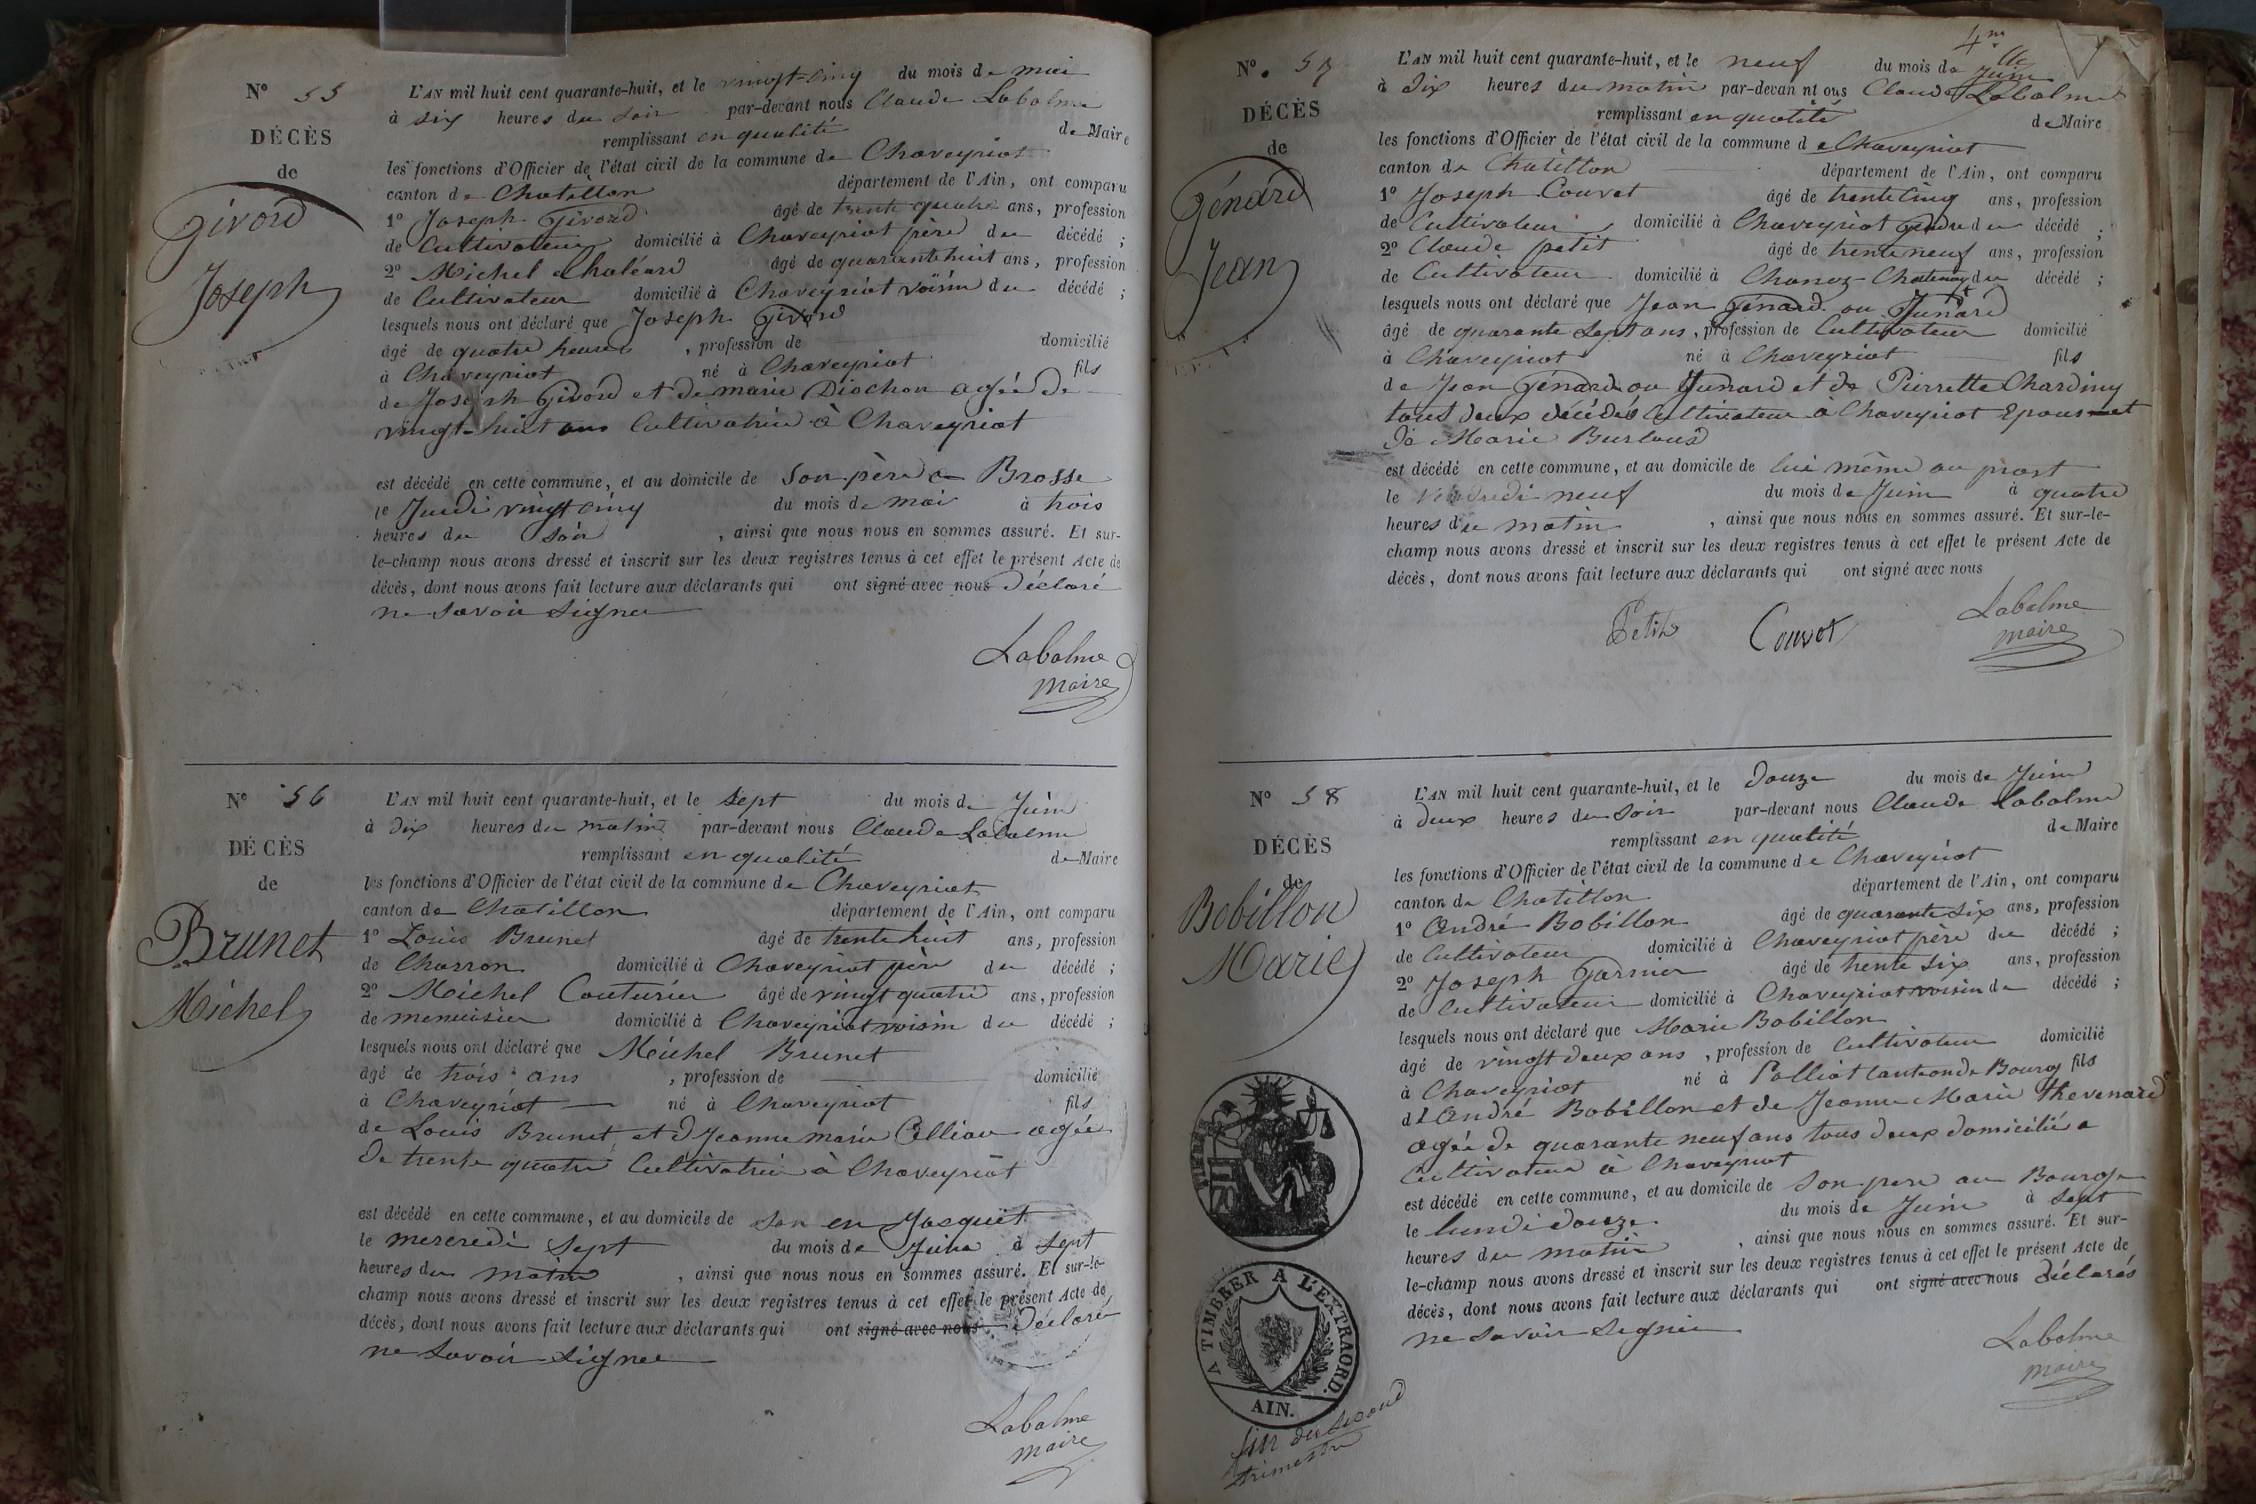 N° 55
DÉCÈS
de
Givord
Joseph
L'AN mil huit cent quarante-huit, et le vingt-cinq du mois de mai
à six heures du soir par-devant nous Claude Labalme
remplissant en qualité de Maire
les fonctions d'Officier de l'état civil de la commune de Chaveyriat
canton de Chatillon département de l'Ain, ont comparu
1° Joseph Givord âgé de trente quatre ans, profession
de Cultivateur domicilié à Chaveyriat père du décédé ;
2° Michel Chaléard âgé de quarante huit ans, profession
de Cultivateur domicilié à Chaveyriat voisin du décédé ;
lesquels nous ont déclaré que Joseph Givord
âgé de quatre heures , profession de domicilié
à Chaveyriat né à Chaveyriat fils
de Joseph Givord et de marie Diochon agée de
vingt-huit ans Cultivatrice à Chaveyriat
est décédé en cette commune, et au domicile de son père a Brosse
le Jeudi vingt cinq du mois de mai à trois
heures du soir , ainsi que nous nous en sommes assuré. Et sur-
le-champ nous avons dressé et inscrit sur les deux registres tenus à cet effet le présent Acte de
décès, dont nous avons fait lecture aux déclarants qui ont signé avec nous déclaré
ne savoir signer
Labalme
maire
N° 56
DÉCÈS
de
Brunet
Michel
L'AN mil huit cent quarante-huit, et le sept du mois de Juin
à dix heures du matin par-devant nous Claude Labalme
remplissant en qualité de Maire
les fonctions d'Officier de l'état civil de la commune de Chaveyriat
canton de Chatillon département de l'Ain, ont comparu
1° Louis Brunet âgé de trente huit ans, profession
de Charron domicilié à Chaveyriat père du décédé ;
2° Michel Couturier âgé de vingt quatre ans, profession
de menuisier domicilié à Chaveyriat voisin du décédé ;
lesquels nous ont déclaré que Michel Brunet
âgé de trois ans , profession de domicilié
à Chaveyriat né à Chaveyriat fils
de Louis Brunet et d Jeanne marie agée
de trente quatre Cultivatrice à Chaveyriat
est décédé en cette commune, et au domicile de son en
le mercredi sept du mois de Juin à sept
heures du matin , ainsi que nous nous en sommes assuré. Et sur-le-
champ nous avons dressé et inscrit sur les deux registres tenus à cet effet le présent Acte de
décès, dont nous avons fait lecture aux déclarants qui ont signé avec nous Déclaré
ne savoir signer
Labalme
maire
4me
N°. 57
DÉCÈS
de
Génard
Jean
L'AN mil huit cent quarante-huit, et le neuf du mois de Juin
à dix heures du matin par-devan nt ous Claude Labalme
remplissant en qualité de Maire
les fonctions d'Officier de l'état civil de la commune d e Chaveyriat
canton de Chatillon département de l'Ain, ont comparu
1° Joseph Couvet âgé de trente cinq ans, profession
de Cultivateur domicilié à Chaveyriat gendre du décédé ;
2° Claude petit âgé de trente neuf ans, profession
de Cultivateur domicilié à Chanoz-Chatenay du décédé ;
lesquels nous ont déclaré que Jean Génard ou Junard
âgé de quarante sept ans , profession de Cultivateur domicilié
à Chaveyriat né à Chaveyriat fils
de Jean Génard ou Junard et de Pierrette Chardiny
tous deux décédés Cultivateur à Chaveyriat Epous
de Marie Burloud
est décédé en cette commune, et au domicile de lui même au
le Vendredi neuf du mois de Juin à quatre
heures du matin , ainsi que nous nous en sommes assuré. Et sur-le-
champ nous avons dressé et inscrit sur les deux registres tenus à cet effet le présent Acte de
décès, dont nous avons fait lecture aux déclarants qui ont signé avec nous
Petit Couvet Labalme
maire
N° 58
DÉCÈS
de
Bobillon
Marie
L'AN mil huit cent quarante-huit, et le douze du mois de Juin
à deux heures du soir par-devant nous Claude Labalme
remplissant en qualité de Maire
les fonctions d'Officier de l'état civil de la commune de Chaveyriat
canton de Chatillon département de l'Ain, ont comparu
1° André Bobillon âgé de quarante six ans, profession
de Cultivateur domicilié à Chaveyriat père du décédé ;
2° Joseph Garnier âgé de trente six ans, profession
de Cultivateur domicilié à Chaveyriat voisin du décédé ;
lesquels nous ont déclaré que Marie Bobillon
âgé de vingt deux ans , profession de Cultivateur domicilié
à Chaveyriat né à Polliat Canton de Bourg fils
d'André Bobillon et de Jeanne Marie thevenard
agée de quarante neuf ans tous deux domicilié a
Cultivateur à Chaveyriat
est décédé en cette commune, et au domicile de son pere au Bourg
le lundi douze du mois de Juin à sept
heures du matin , ainsi que nous nous en sommes assuré. Et sur-
le-champ nous avons dressé et inscrit sur les deux registres tenus à cet effet le présent Acte de
décès, dont nous avons fait lecture aux déclarants qui ont signé avec nous déclarés
ne savoir signer
Labalme
maire
TIMBRE
A TIMBRER A L'EXTRAORD.
AIN.
fin du second
trimestre